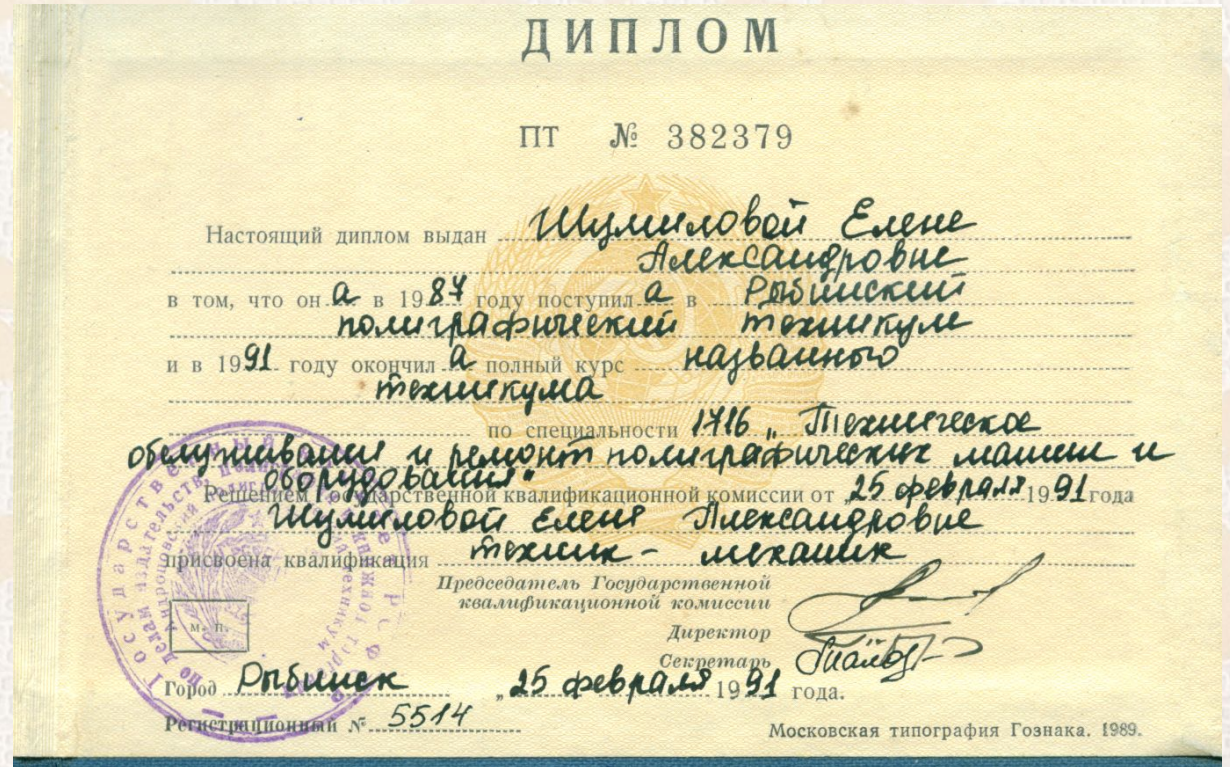 ДИПЛОМ
ПТ № 382379
Настоящий диплом выдан Шумиловой Елене
Александровне
в том, что он а в 1987 году поступил а в Рыбинский
полиграфический техникум
и в 1991 году окончил а полный курс названного
техникума
по специальности 1716 „Техническое
обслуживание и ремонт полиграфических машин и
оборудования"
Решением Государственной квалификационной комиссии от 25 февраля 1991 года
Шумиловой Елене Александровне
присвоена квалификация техник - механик
Председатель Государственной
квалификационной комиссии
Директор
Секретарь
М. П.
Город Рыбинск „25 февраля 1991 года.
Регистрационный № 5514
Московская типография Гознака. 1989.